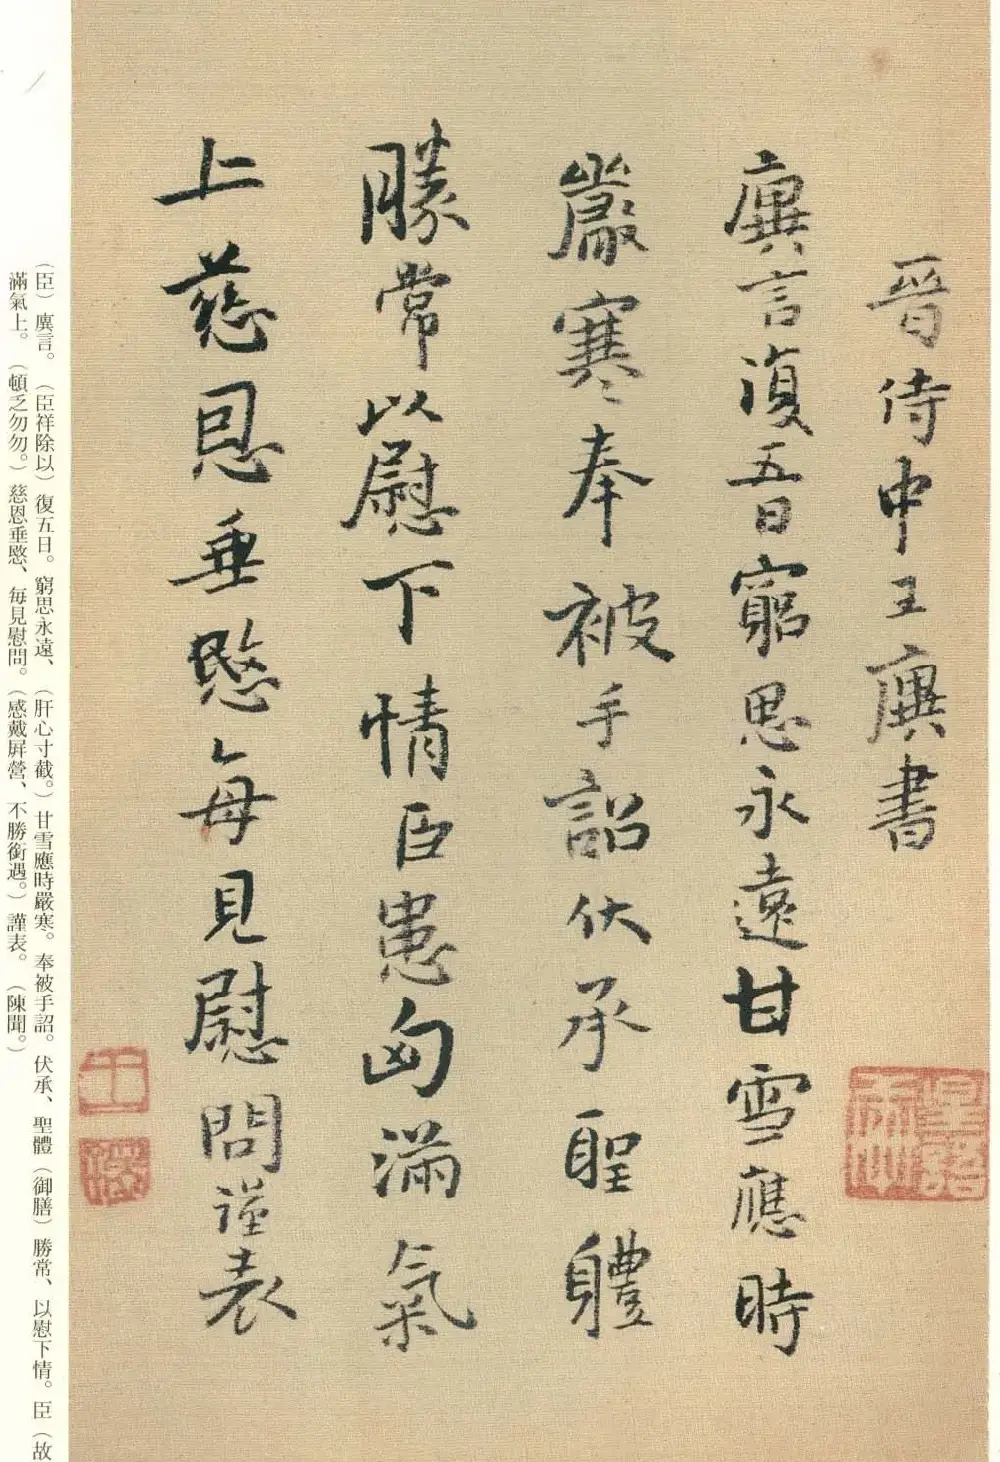 晉侍中王廙書
廙言復五日窮思永遠甘雪應時
嚴寒奉被手詔伏承聖體
勝常以慰下情臣患匈滿氣
上慈恩垂愍每見慰問謹表
（臣）廙言。（臣祥除以）復五日。窮思永遠、（肝心寸截。）甘雪應時嚴寒。奉被手詔。伏承、聖體（御膳）勝常、以慰下情。臣（故
滿氣上。（頓乏勿勿。）慈恩垂愍、每見慰問。（感戴屏營、不勝銜遇。）謹表。（陳聞。）